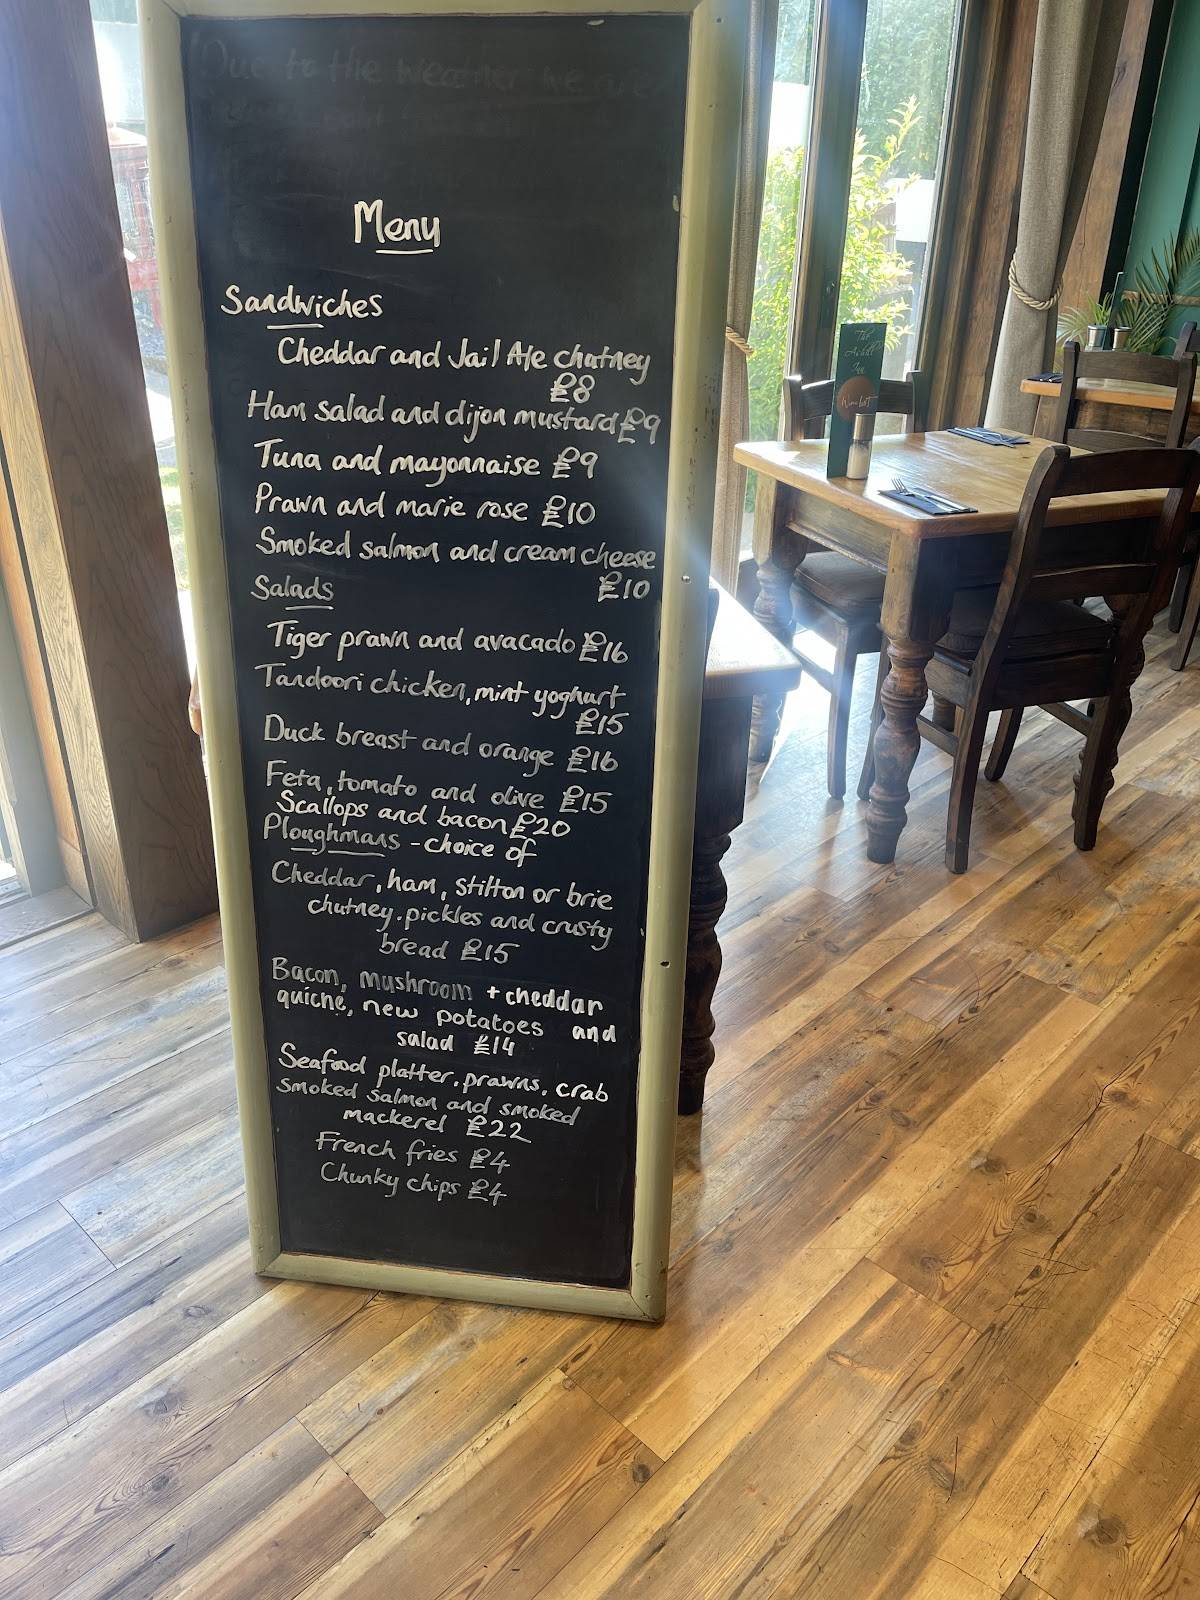 Due to the weather we are
Menu
Sandwiches
Cheddar and Jail Ale chutney
£8
Ham salad and dijon mustard £9
Tuna and mayonnaise £9
Prawn and marie rose £10
Smoked salmon and cream cheese
£10
Salads
Tiger prawn and avacado £16
Tandoori chicken, mint yoghurt
£15
Duck breast and orange £16
Feta, tomato and olive £15
Scallops and bacon £20
Ploughmans - choice of
Cheddar, ham, stilton or brie
chutney. pickles and crusty
bread £15
Bacon, mushroom + cheddar
quiche, new potatoes and
salad £14
Seafood platter. prawns. crab
smoked salmon and smoked
mackerel £22
French fries £4
Chunky chips £4
The
Ashill
Inn
Wine list